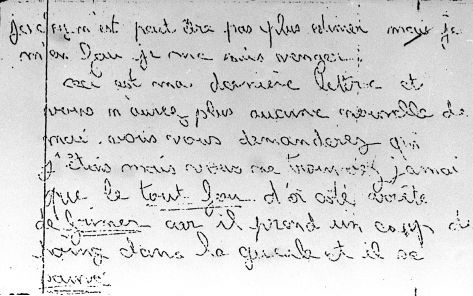 n'est peut être pas plus estimer mais je
m'en fou je me suis venger.
ceci est ma derniere lettre et
vous n'aurez plus aucune nouvelle de
moi. vous vous demanderez qui
j'étais mais vous ne trouverez jamai
que le tout fou d'a coté
de car il prend un coup di
poing dans la gueule et il se